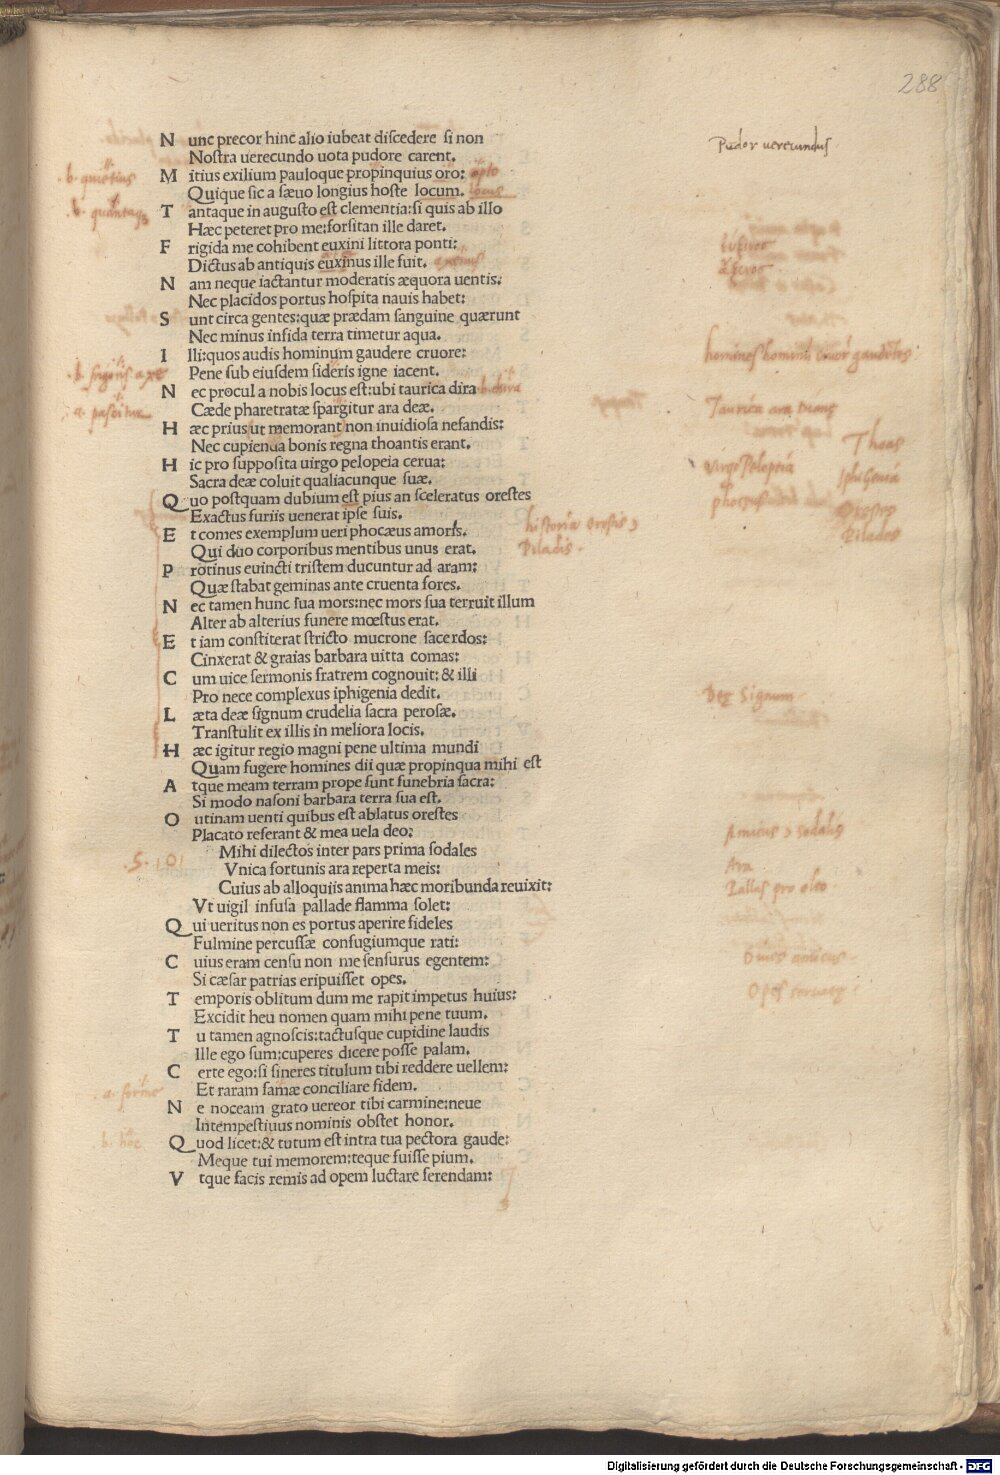 288
Nunc precor hinc alio iubeat discedere si non
Nostra uerecundo uota pudore carent.
Pudor uerecundus
Mitius exilium pauloque propinquius oro: opto
b. quietius
Quique sic a sæuo longius hoste locum. locus
Tantaque in augusto est clementia: si quis ab illo
Hæc peteret pro me: forsitan ille daret.
Frigida me cohibent euxini littora ponti:
Dictus ab antiquis euxinus ille fuit. axenus
Nam neque iactantur moderatis æquora uentis:
Nec placidos portus hospita nauis habet:
Sunt circa gentes: quæ prædam sanguine quærunt
Nec minus infida terra timetur aqua.
Illi: quos audis hominum gaudere cruore:
Pene sub eiusdem sideris igne iacent.
Nec procul a nobis locus est: ubi taurica dira b. dira
Cæde pharetratæ spargitur ara deæ.
a. pascitur
Taurica ara
Hæc prius ut memorant non inuidiosa nefandis:
Nec cupienda bonis regna thoantis erant.
Thoas
Hic pro supposita uirgo pelopeia cerua:
Virgo Pelopeia
Iphigenia
Sacra deæ coluit qualiacunque suæ.
Quo postquam dubium est pius an sceleratus orestes
Orestes
Exactus furiis uenerat ipse suis.
historia Orestis &
Piladis.
Pilades
Et comes exemplum ueri phocæus amoris.
Qui duo corporibus mentibus unus erat.
Protinus euincti tristem ducuntur ad aram:
Quæ stabat geminas ante cruenta fores.
Nec tamen hunc sua mors: nec mors sua terruit illum
Alter ab alterius funere mœstus erat.
Et iam constiterat stricto mucrone sacerdos:
Cinxerat & graias barbara uitta comas:
Cum uice sermonis fratrem cognouit: & illi
Pro nece complexus iphigenia dedit.
Deę Signum
Læta deæ signum crudelia sacra perosæ.
Transtulit ex illis in meliora locis.
Hæc igitur regio magni pene ultima mundi
Quam fugere homines dii quæ propinqua mihi est
Atque meam terram prope sunt funebria sacra:
Si modo nasoni barbara terra sua est.
O utinam uenti quibus est ablatus orestes
Placato referant & mea uela deo:
Mihi dilectos inter pars prima sodales
Amicus & sodalis
Vnica fortunis ara reperta meis:
Ara
Cuius ab alloquiis anima hæc moribunda reuixit:
Pallas pro oleo
Vt uigil infusa pallade flamma solet:
Qui ueritus non es portus aperire fideles
Fulmine percussæ confugiumque rati:
Cuius eram censu non me sensurus egentem:
Si cæsar patrias eripuisset opes.
Temporis oblitum dum me rapit impetus huius:
Excidit heu nomen quam mihi pene tuum.
Tu tamen agnoscis: tactusque cupidine laudis
Ille ego sum: cuperes dicere posse palam.
Certe ego: si sineres titulum tibi reddere uellem:
Et raram famæ conciliare fidem.
Ne noceam grato uereor tibi carmine: neue
Intempestiuus nominis obstet honor.
b. hoc
Quod licet: & tutum est intra tua pectora gaude:
Meque tui memorem: teque fuisse pium.
Vtque facis remis ad opem luctare ferendam:
Digitalisierung gefördert durch die Deutsche Forschungsgemeinschaft - DFG